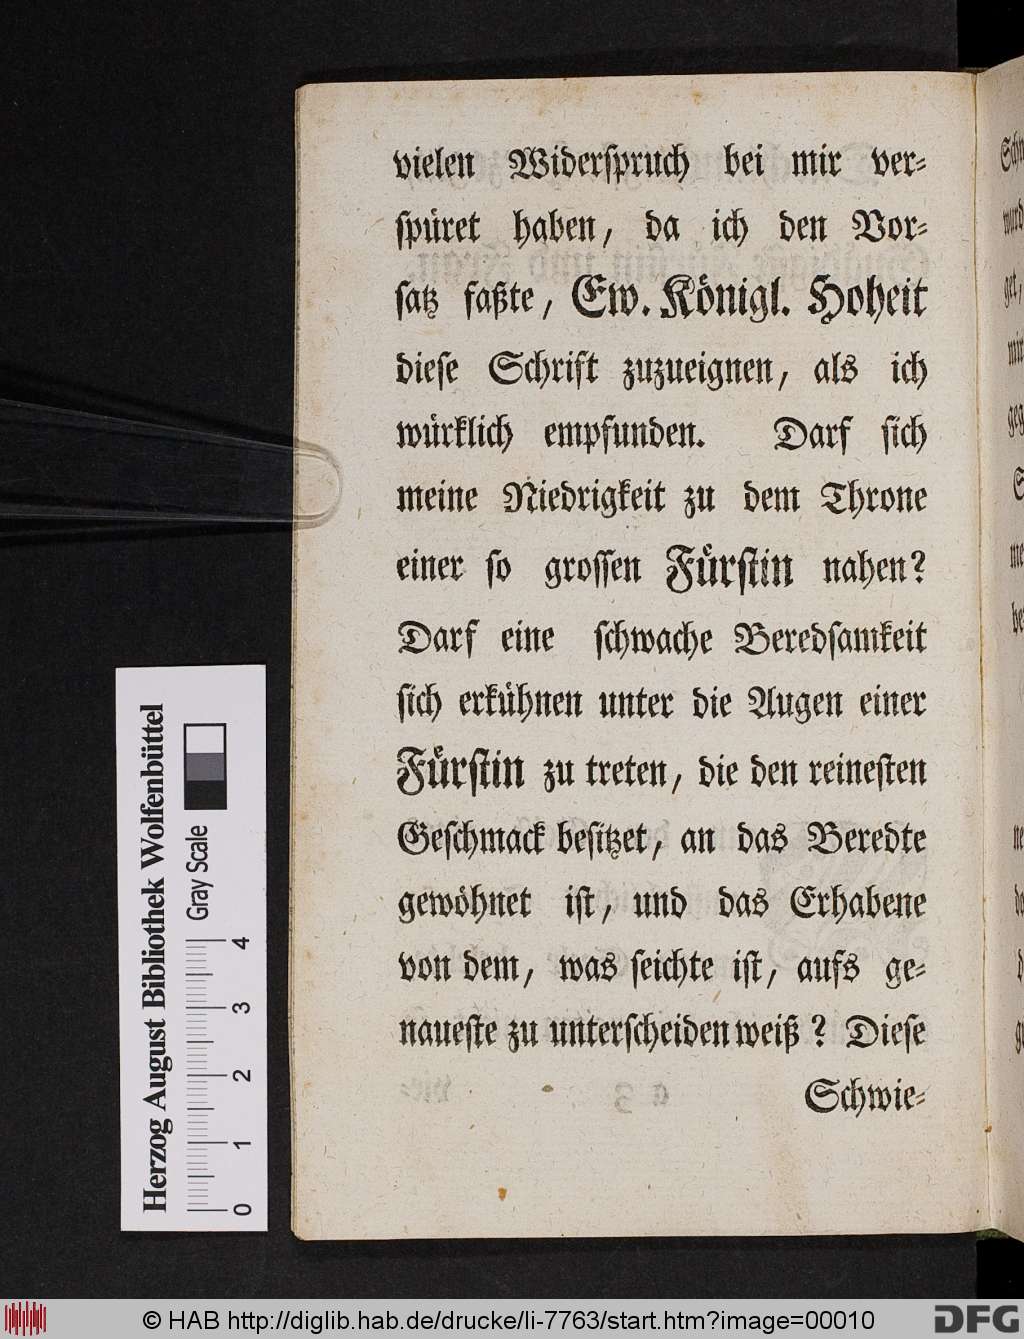 vielen Widerſpruch bei mir ver⸗
ſpüret haben, da ich den Vor⸗
ſatz faßte, Ew. Königl. Hoheit
dieſe Schrift zuzueignen, als ich
würklich empfunden. Darf ſich
meine Niedrigkeit zu dem Throne
einer ſo groſſen Fürſtin nahen?
Darf eine ſchwache Beredſamkeit
ſich erkühnen unter die Augen einer
Fürſtin zu treten, die den reineſten
Geſchmack beſitzet, an das Beredte
gewöhnet iſt, und das Erhabene
von dem, was ſeichte iſt, aufs ge⸗
naueſte zu unterſcheiden weiß? Dieſe
Schwie⸗
Herzog August Bibliothek Wolfenbüttel
Gray Scale
0 1 2 3 4
© HAB http://diglib.hab.de/drucke/li-7763/start.htm?image=00010
DFG